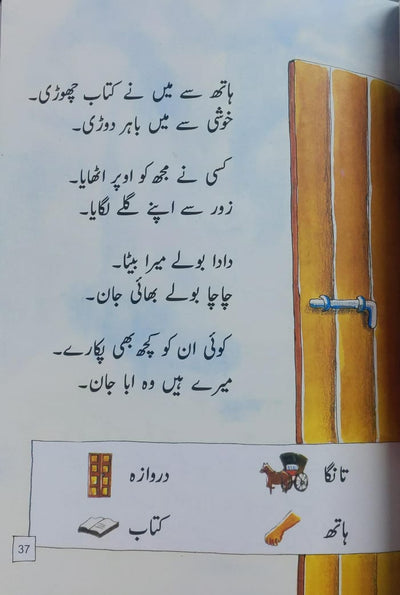 ہاتھ سے میں نے کتاب چھوڑی۔
خوشی سے میں باہر دوڑی۔
کسی نے مجھ کو اوپر اٹھایا۔
زور سے اپنے گلے لگایا۔
دادا بولے میرا بیٹا۔
چاچا بولے بھائی جان۔
کوئی ان کو کچھ بھی پکارے۔
میرے ہیں وہ ابا جان۔
تانگا
دروازہ
ہاتھ
کتاب
37